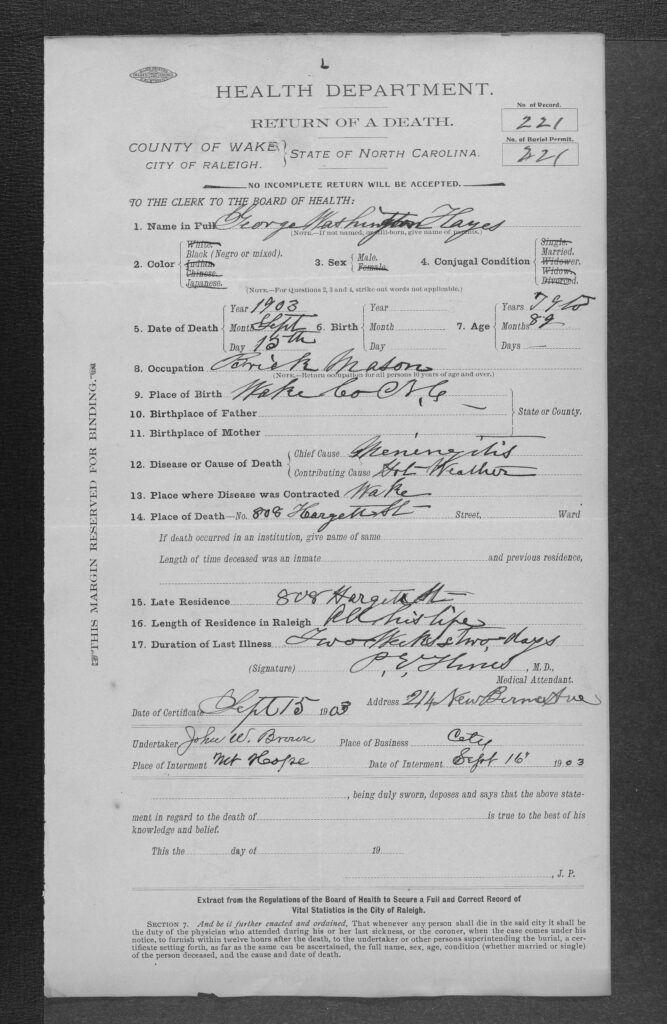 L
HEALTH DEPARTMENT.
RETURN OF A DEATH.
No. of Record.
221
No. of Burial Permit.
221
COUNTY OF WAKE
CITY OF RALEIGH.
STATE OF NORTH CAROLINA.
NO INCOMPLETE RETURN WILL BE ACCEPTED.
TO THE CLERK TO THE BOARD OF HEALTH:
1. Name in Full George Washington Hayes
(NOTE.—If not named, or still-born, give name of parents.)
2. Color White. Black (Negro or mixed). Indian. Chinese. Japanese.
3. Sex Male. Female.
4. Conjugal Condition Single. Married. Widower. Widow. Divorced.
(NOTE.—For Questions 2, 3 and 4, strike out words not applicable.)
5. Date of Death Year 1903 Month Sept Day 15th
6. Birth Year Month Day
7. Age Years 79 Months Days —
8. Occupation Brick Mason
(NOTE.—Return occupation for all persons 10 years of age and over.)
9. Place of Birth Wake Co N.C
10. Birthplace of Father —
11. Birthplace of Mother
State or County.
12. Disease or Cause of Death Chief Cause Meningitis
Contributing Cause Hot Weather
13. Place where Disease was Contracted Wake
14. Place of Death—No. 808 Hargett St Street, Ward
If death occurred in an institution, give name of same
Length of time deceased was an inmate and previous residence,
15. Late Residence 808 Hargett St
16. Length of Residence in Raleigh All his life
17. Duration of Last Illness Two Weeks & two days
(Signature) P. V. Hines, M.D.,
Medical Attendant.
Date of Certificate Sept 15 1903 Address 214 New Berne Ave
Undertaker John W. Brown Place of Business City
Place of Interment Mt Hope Date of Interment Sept 16 1903
, being duly sworn, deposes and says that the above state-
ment in regard to the death of is true to the best of his
knowledge and belief.
This the day of 19
, J. P.
Extract from the Regulations of the Board of Health to Secure a Full and Correct Record of
Vital Statistics in the City of Raleigh.
SECTION 7. And be it further enacted and ordained, That whenever any person shall die in the said city it shall be
the duty of the physician who attended during his or her last sickness, or the coroner, when the case comes under his
notice, to furnish within twelve hours after the death, to the undertaker or other persons superintending the burial, a cer-
tificate setting forth, as far as the same can be ascertained, the full name, sex, age, condition (whether married or single)
of the person deceased, and the cause and date of death.
THIS MARGIN RESERVED FOR BINDING.